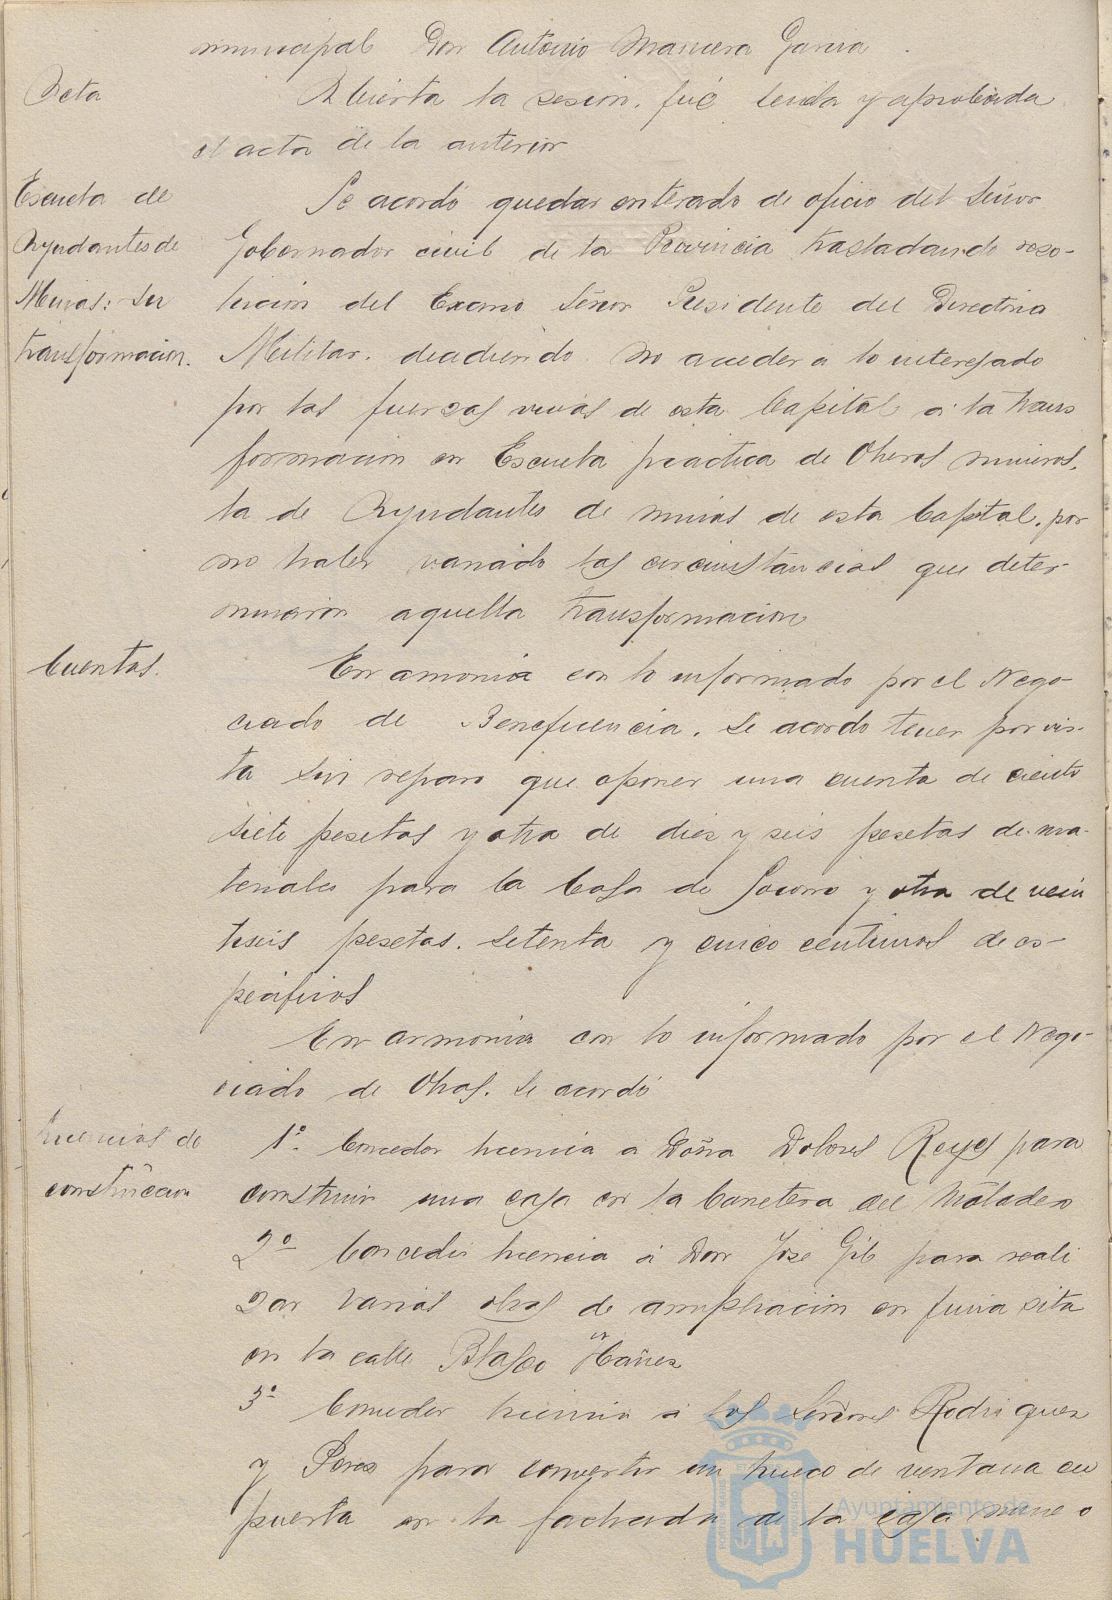 municipal Don Antonio Mancera Garcia.
Acta
Abierta la sesion, fué leida y aprobada
el acta de la anterior
Escuela de
Ayudantes de
Minas: Su
transformacion.
Se acordó quedar enterado de oficio del Señor
Gobernador civil de la Provincia trasladando reso-
lucion del Excmo Señor Presidente del Directorio
Militar, decidiendo no acceder a lo interesado
por las fuerzas vivas de esta Capital a la trans
formacion en Escuela practica de Obreros mineros,
la de Ayudantes de minas de esta Capital, por
no haber variado las circunstancias que deter-
minaron aquella transformacion
Cuentas.
En amonia con lo informado por el Nego-
ciado de Beneficencia, se acordo tener por vis-
ta sin reparo que oponer una cuenta de ciento
siete pesetas y otra de diez y seis pesetas de ma-
teriales para la Casa de Socorro y otra de vein
tiseis pesetas, setenta y cinco centimos de es-
pecificos
En armonia con lo informado por el Nego-
ciado de Obras, se acordó
Licencias de
construccion
1º. Conceder licencia a Doña Dolores Reyes para
construir una casa en la Carretera del Matadero
2º Conceder licencia á Don José Gil para reali
zar varias obras de ampliacion en finca sita
en la calle Blasco Ibañez
3º Conceder licencia á los Señores Rodriguez
y Perez para convertir un hueco de ventana en
puerta en la fachada de la casa nume o
Ayuntamiento de
HUELVA